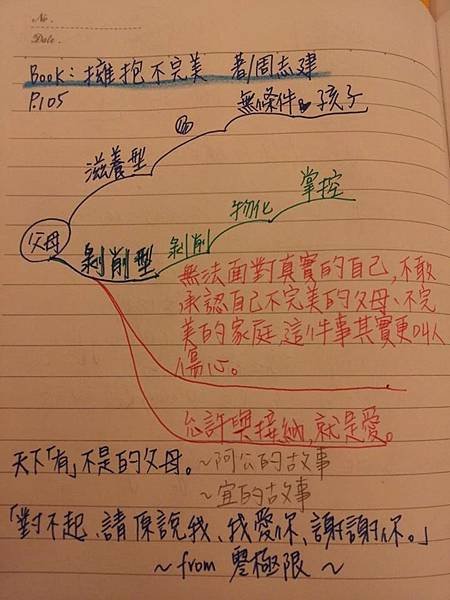 No.
Date.
Book:擁抱不完美 著/周志建
P.105
無條件 孩子
滋養型
父母
剝削型 剝削 物化 掌控
無法面對真實的自己,不敢
承認自己不完美的父母、不完
美的家庭,這件事其實更叫人
傷心。
允許與接納,就是愛。
天下「有」不是的父母。~阿公的故事
~宜的故事
「對不起、請原諒我、我愛你、謝謝你。」
~from 零極限~